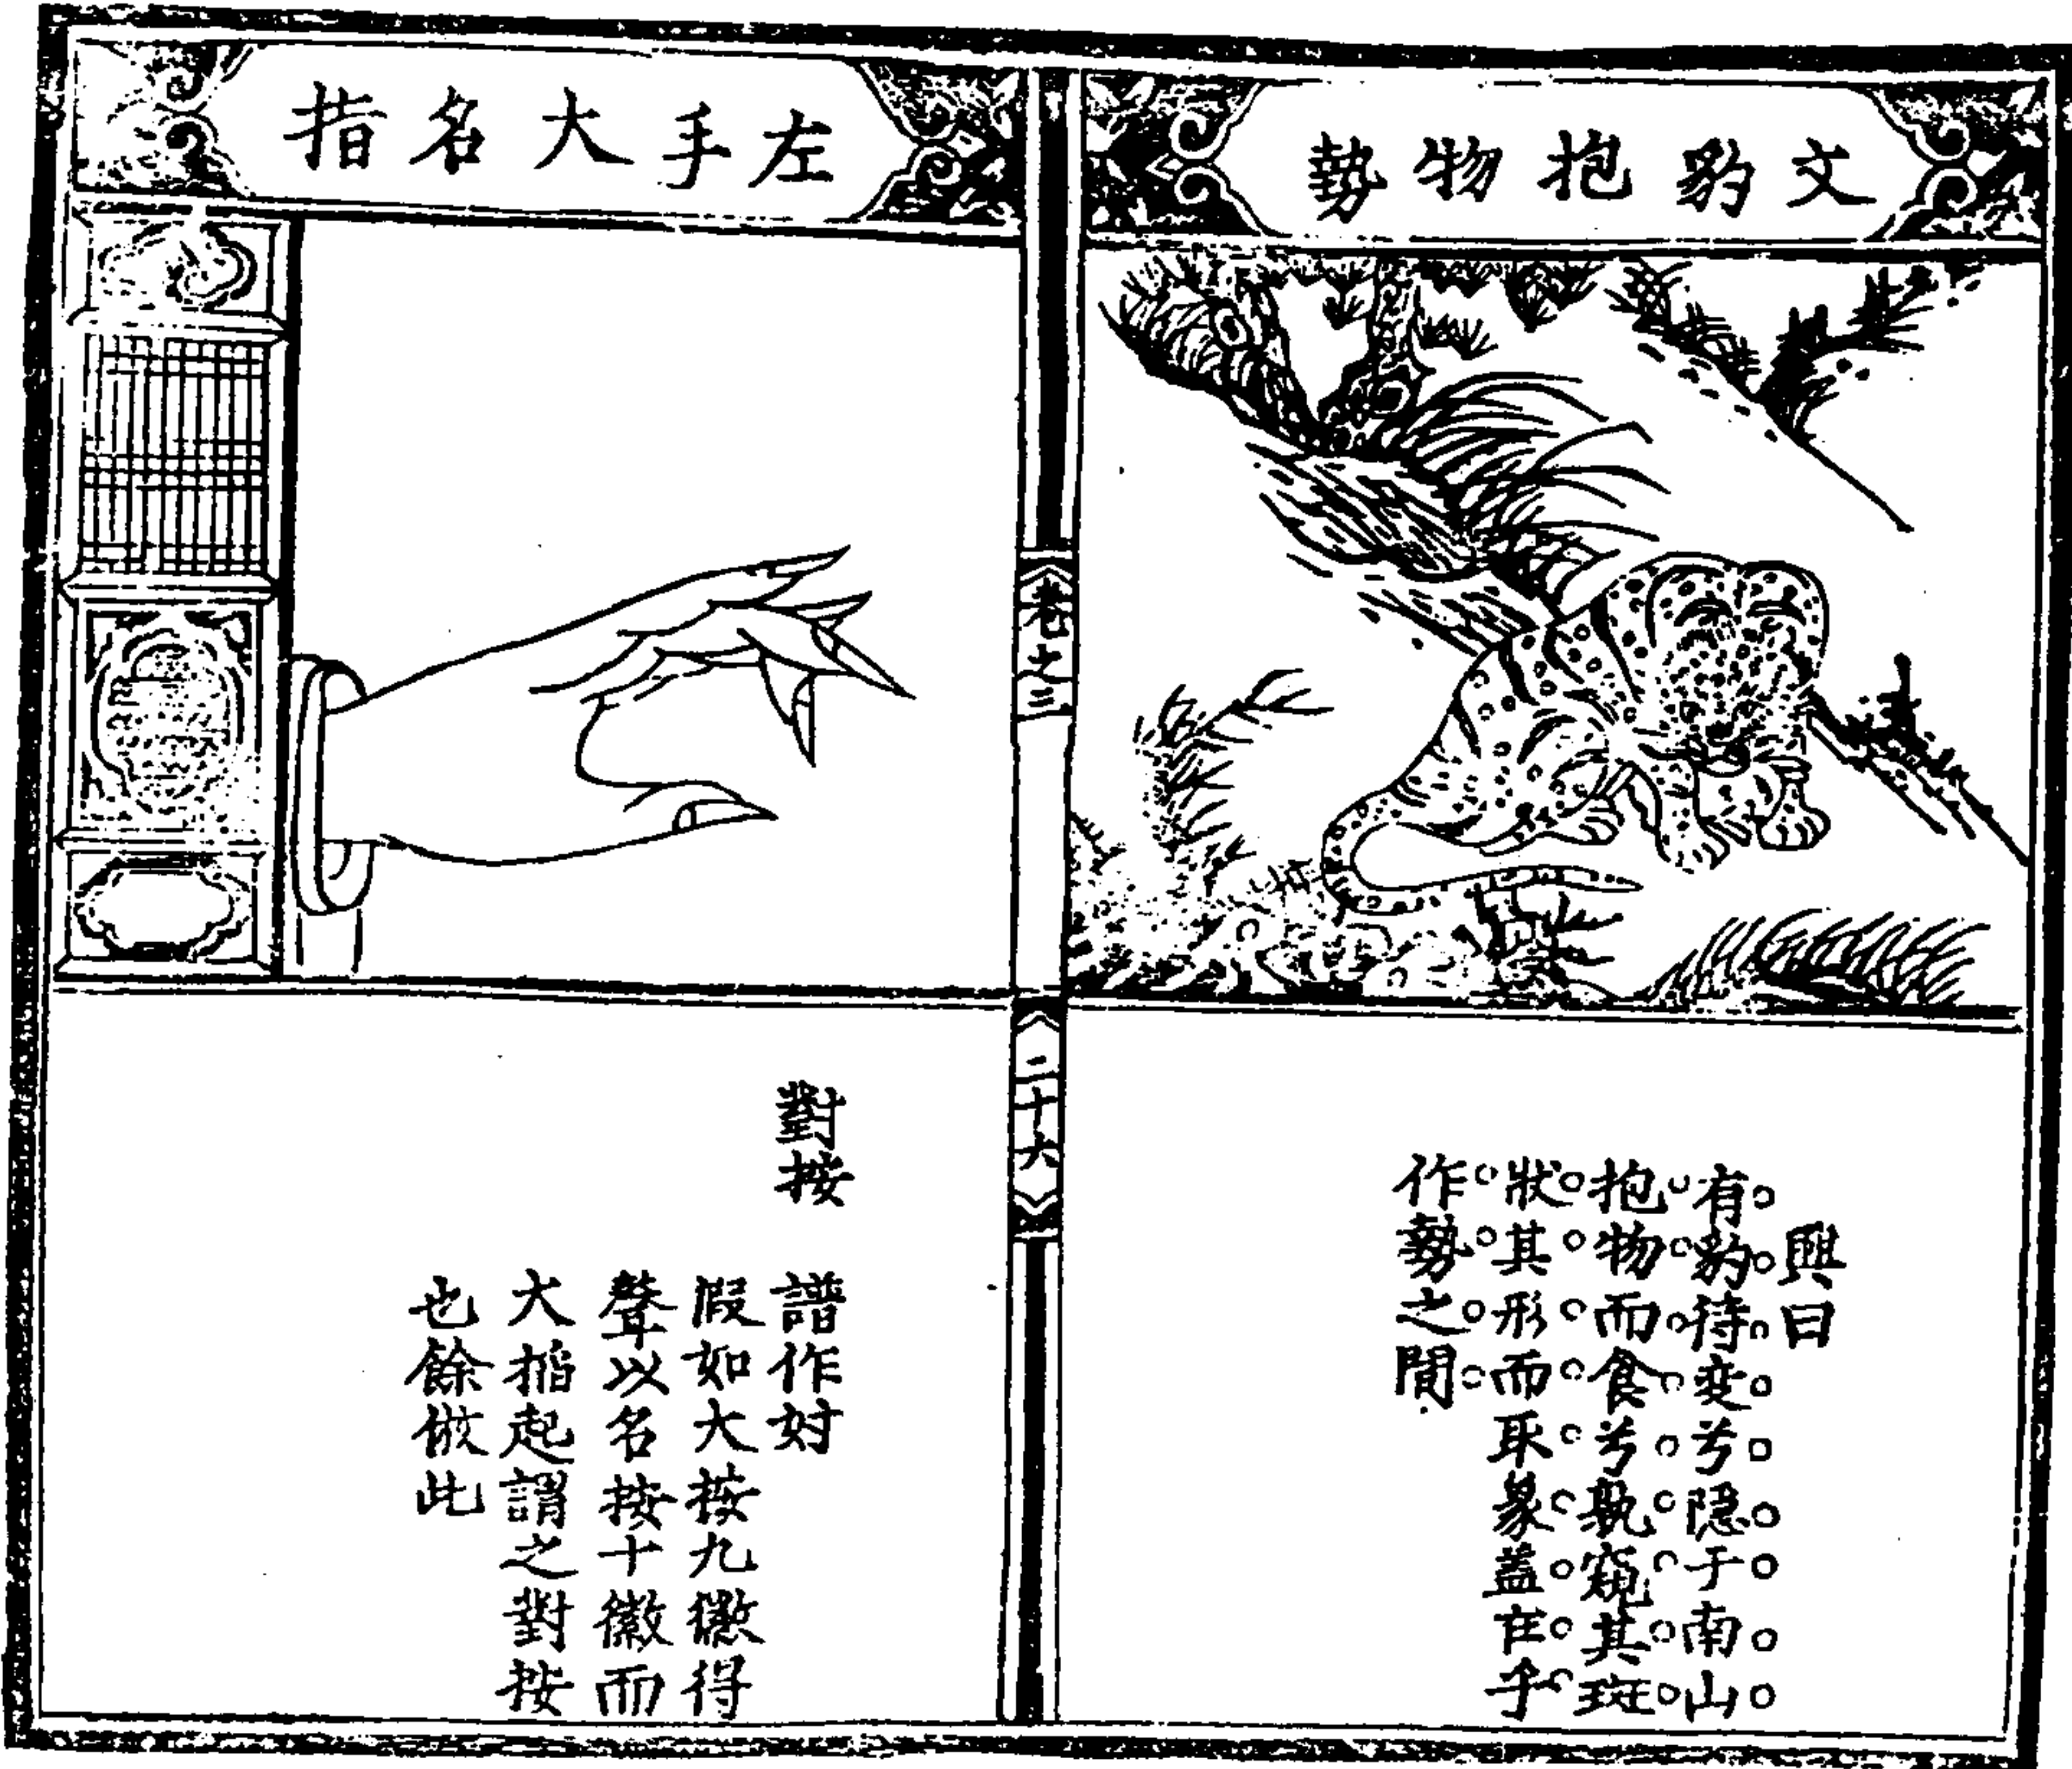 文豹抱物勢
興曰
有豹待变兮隐于南山
抱物而食兮孰窺其斑
狀其形而取象蓋在乎
作勢之間
卷之三
二十六
左手大名指
對按 譜作対
假如大按九徽得
聲以名按十徽而
大指起謂之對按
也餘倣此